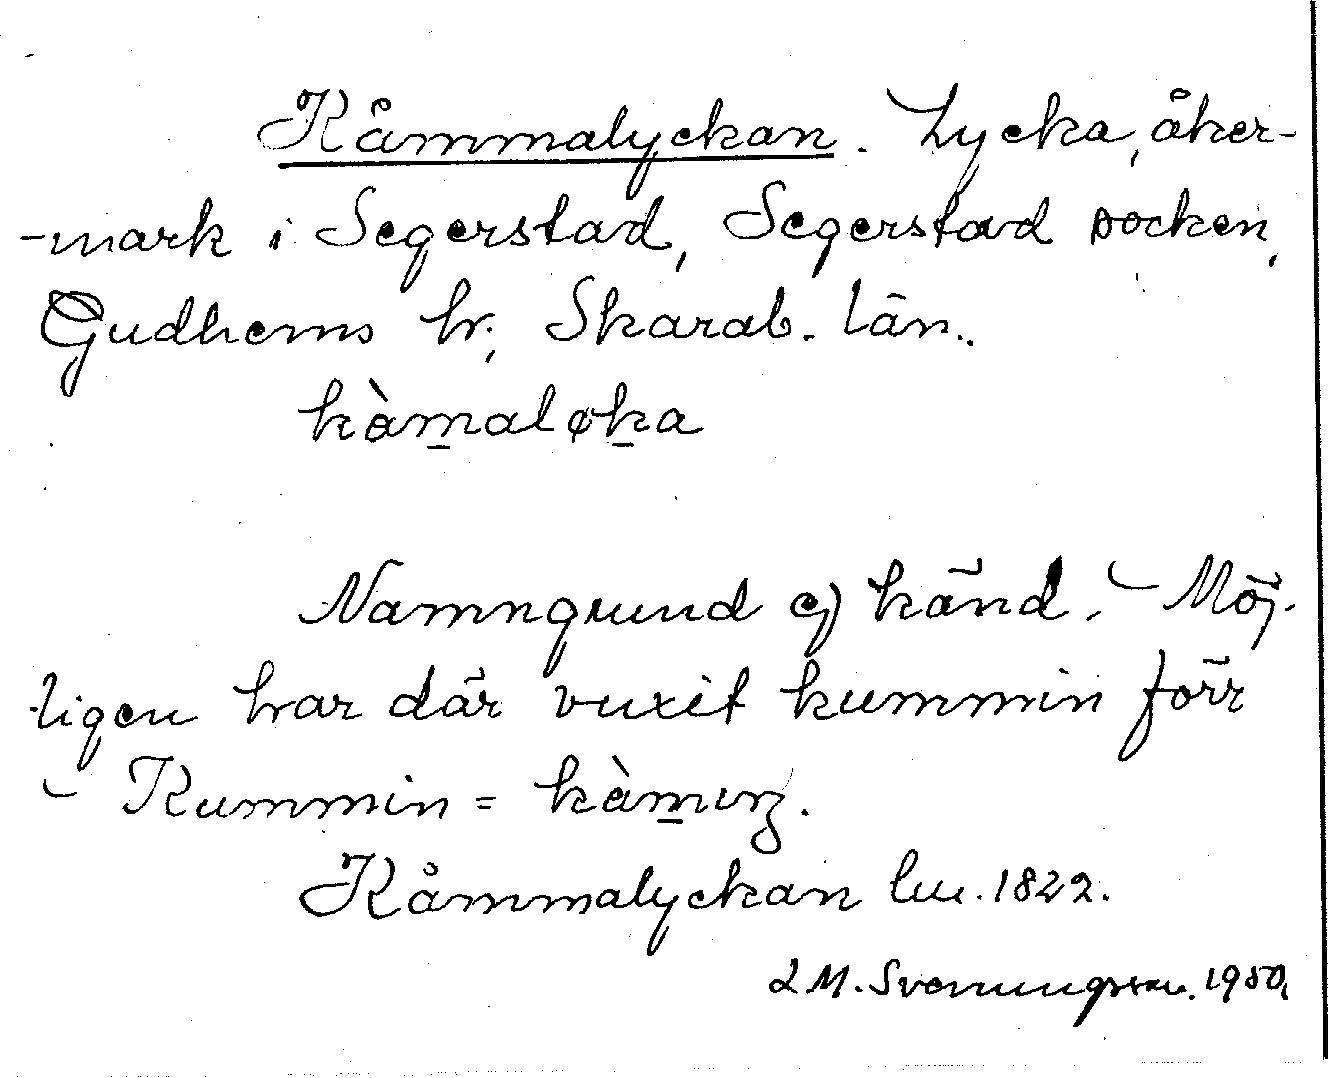 Kåmmalyckan. Lycka, åker-
-mark i Segerstad, Segerstad socken,
Gudhems hr, Skarab. län.
kàm̲aløk̲a
Namngrund ej känd. – Möj-
ligen har där vuxit kummin förr
– Kummin = kàm̲ıŋ.
Kåmmalyckan lm. 1822.
L M. Svenungsson. 1950.